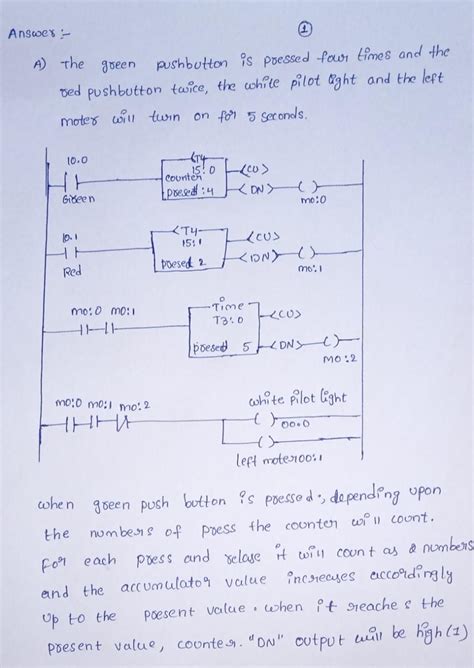 ①
Answer :-
A) The green pushbutton is pressed four times and the
red pushbutton twice, the white pilot light and the left
moter will turn on for 5 seconds.
10.0
CT4
15:0
counter
preset : 4
<CU>
<DN>
( )
Green
mo:0
10.1
CT4
15:1
preset 2
<CU>
<DN>
( )
Red
mo:1
mo:0 mo:1
Time
T3:0
preset 5
<CU>
<DN>
( )
mo:2
mo:0 mo:1 mo:2
white pilot light
( )
00.0
( )
left moter 00:1
when green push button is pressed, depending upon
the numbers of press the counter will count.
For each press and relase it will count as a numbers
and the accumulator value increases accordingly
up to the present value. when it reaches the
present value, counter. "DN" output will be high (1)